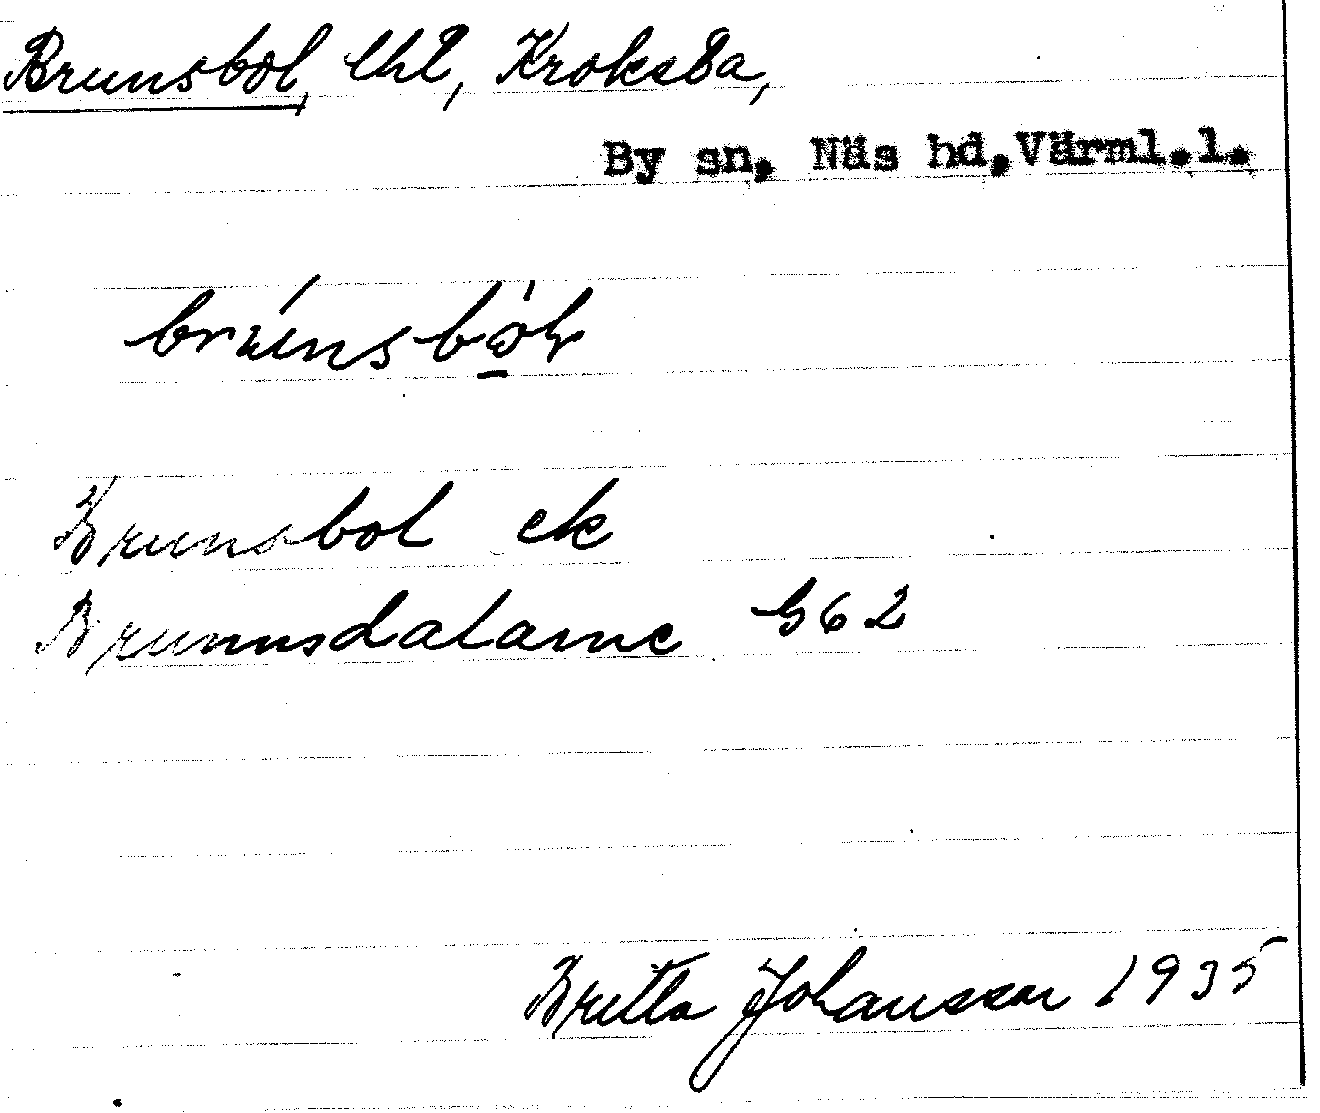 Brunsbol, lht, Kroksta,
By sn, Näs hd, Värml.l.
Brunsbol ek
Brunnsdalarne G62
Britta Johansson 1935